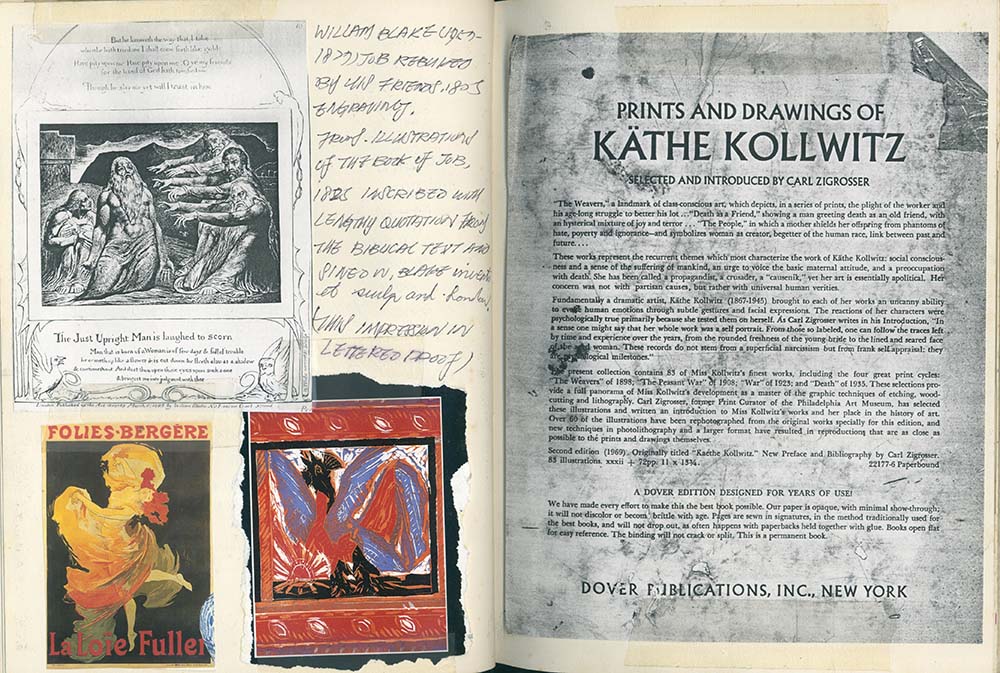 But he knoweth the way that I take
when he hath tried me I shall come forth like gold
Have pity upon me Have pity upon me O ye my friends
for the hand of God hath touched me
Though he slay me yet will I trust in him
The Just Upright Man is laughed to scorn
Man that is born of a Woman is of few days & full of trouble
he cometh up like a flower & is cut down he fleeth also as a shadow
& continueth not And dost thou open thine eyes upon such a one
& bringest me into judgment with thee
WILLIAM BLAKE (1757-
1827) JOB REBUKED
BY HIS FRIENDS. 1825
ENGRAVING.
FROM. ILLUSTRATIONS
OF THE BOOK OF JOB,
1825 INSCRIBED WITH
LENGTHY QUOTATION FROM
THE BIBLICAL TEXT AND
SINED W, BLAKE invent
et sculp and London,
THIS IMPRESSION IN
LETTERED PROOF)
FOLIES-BERGÈRE
La Loïe Fuller
PRINTS AND DRAWINGS OF
KÄTHE KOLLWITZ
SELECTED AND INTRODUCED BY CARL ZIGROSSER
"The Weavers," a landmark of class-conscious art, which depicts, in a series of prints, the plight of the worker and
his age-long struggle to better his lot . . . "Death as a Friend," showing a man greeting death as an old friend, with
an hysterical mixture of joy and terror . . . "The People," in which a mother shields her offspring from phantoms of
hate, poverty and ignorance—and symbolizes woman as creator, begetter of the human race, link between past and
future. . . .
These works represent the recurrent themes which most characterize the work of Käthe Kollwitz: social conscious-
ness and a sense of the suffering of mankind, an urge to voice the basic maternal attitude, and a preoccupation
with death. She has been called a propagandist, a crusader, a "causenik," yet her art is essentially apolitical. Her
concern was not with partisan causes, but rather with universal human verities.
Fundamentally a dramatic artist, Käthe Kollwitz (1867-1945) brought to each of her works an uncanny ability
to evoke human emotions through subtle gestures and facial expressions. The reactions of her characters were
psychologically true primarily because she tested them on herself. As Carl Zigrosser writes in his Introduction, "In
a sense one might say that her whole work was a self portrait. From those so labeled, one can follow the traces left
by time and experience over the years, from the rounded freshness of the young bride to the lined and seared face
of the old woman. These records do not stem from a superficial narcissism but from frank self-appraisal; they
are psychological milestones."
The present collection contains 83 of Miss Kollwitz's finest works, including the four great print cycles:
"The Weavers" of 1898; "The Peasant War" of 1908; "War" of 1923; and "Death" of 1935. These selections pro-
vide a full panorama of Miss Kollwitz's development as a master of the graphic techniques of etching, wood-
cutting and lithography. Carl Zigrosser, former Print Curator of the Philadelphia Art Museum, has selected
these illustrations and written an introduction to Miss Kollwitz's works and her place in the history of art.
Over 60 of the illustrations have been rephotographed from the original works specially for this edition, and
new techniques in photolithography and a larger format have resulted in reproductions that are as close as
possible to the prints and drawings themselves.
Second edition (1969). Originally titled "Kaethe Kollwitz." New Preface and Bibliography by Carl Zigrosser.
83 illustrations. xxxii + 72pp. 11 x 13¾.
22177-6 Paperbound
A DOVER EDITION DESIGNED FOR YEARS OF USE!
We have made every effort to make this the best book possible. Our paper is opaque, with minimal show-through;
it will not discolor or become brittle with age. Pages are sewn in signatures, in the method traditionally used for
the best books, and will not drop out, as often happens with paperbacks held together with glue. Books open flat
for easy reference. The binding will not crack or split. This is a permanent book.
DOVER PUBLICATIONS, INC., NEW YORK